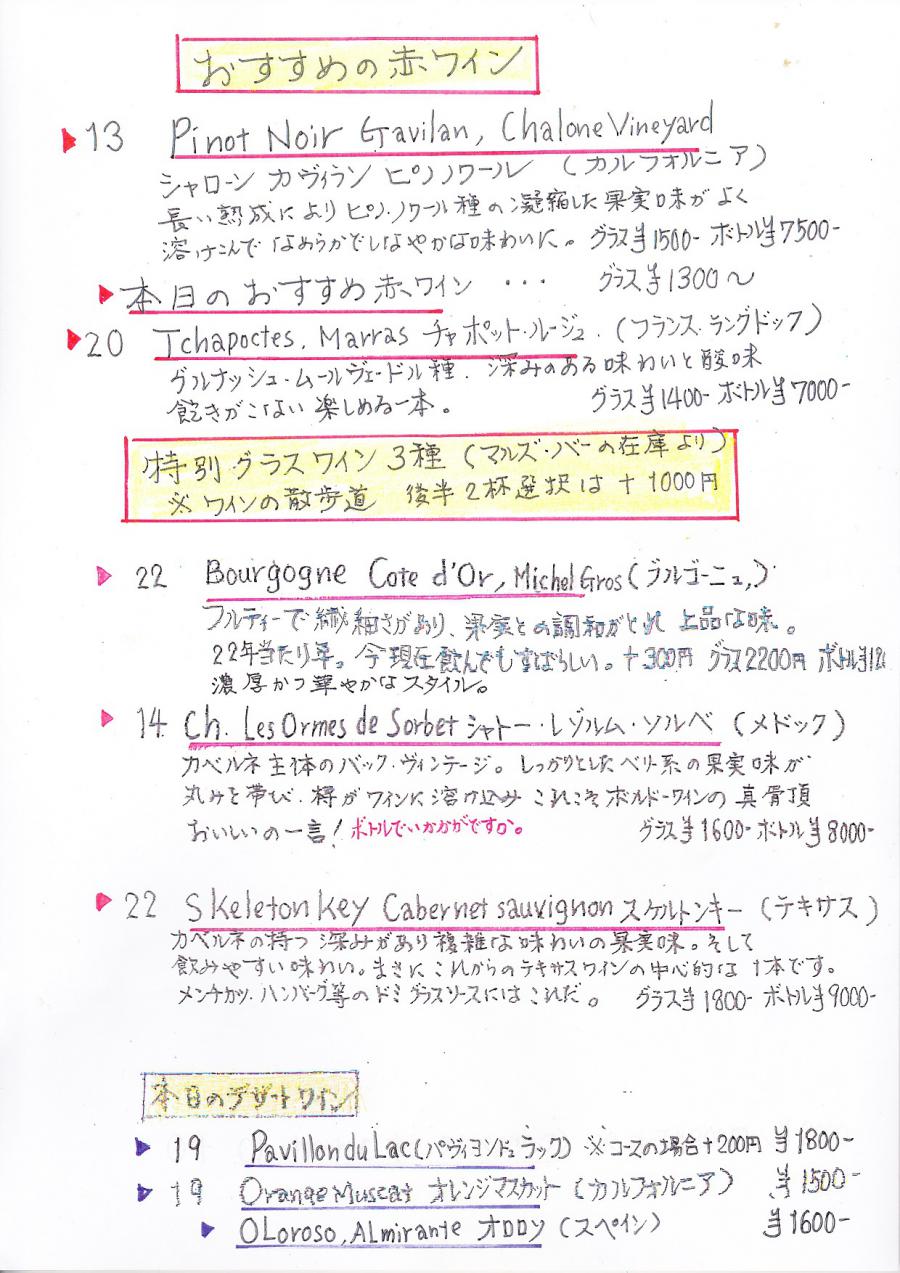 おすすめの赤ワイン
13 Pinot Noir Gavilan, Chalone Vineyard
シャローン ガヴィラン ピノノワール (カルフォルニア)
長い熟成により ピノ・ノワール種の凝縮した果実味がよく
溶けこんで なめらかでしなやかな味わいに。 グラス¥1500- ボトル¥7500-
本日のおすすめ赤ワイン ・・・ グラス¥1300〜
20 Tchapoctes, Marras チャポット・ルージュ. (フランス・ラングドック)
グルナッシュ・ムールヴェードル種. 深みのある味わいと酸味
飽きがこない楽しめる一本。 グラス¥1400- ボトル¥7000-
特別グラスワイン3種 (マルズ・バーの在庫より)
※ワインの散歩道 後半2杯選択は+1000円
22 Bourgogne Cote d'Or, Michel Gros (ブルゴーニュ,)
フルティーで繊細さがあり、果実との調和がとれ 上品な味。
22年当たり年。今現在飲んでもすばらしい。+300円 グラス2200円 ボトル¥12
濃厚かつ華やかなスタイル。
14. Ch. Les Ormes de Sorbet シャトー・レゾルム・ソルベ (メドック)
カベルネ主体のバック・ヴィンテージ。しっかりとしたベリー系の果実味が
丸みを帯び、樽がワインに溶け込み これこそボルドーワインの真骨頂
おいしいの一言! ボトルでいかかがですか。 グラス¥1600- ボトル¥8000-
22 Skeleton Key Cabernet sauvignon スケルトンキー (テキサス)
カベルネの持つ深みがあり複雑な味わいの果実味。そして
飲みやすい味わい。まさにこれからのテキサスワインの中心的な1本です。
メンチカツ・ハンバーグ等のドミグラスソースにはこれだ。 グラス¥1800- ボトル¥9000-
本日のデザートワイン
19 Pavillon du Lac (パヴィヨンドュラック) ※コースの場合+200円 ¥1800-
19 Orange Muscat オレンジマスカット (カルフォルニア) ¥1500-
OLoroso, ALmirante オロロソ (スペイン) ¥1600-